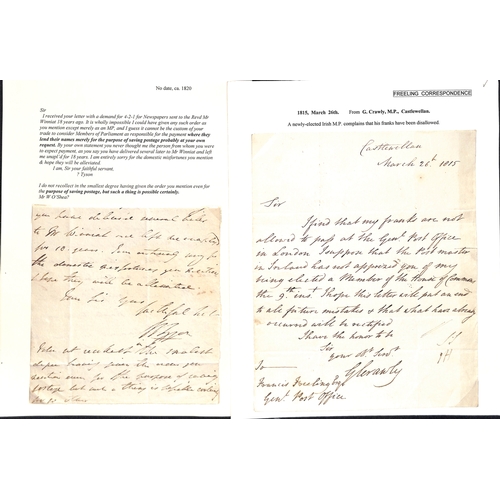 No date, ca. 1820
Sir
I received your letter with a demand for 4-2-1 for Newspapers sent to the Revd Mr
Winniat 18 years ago. It is wholly impossible I could have given any such order as
you mention except merely as an MP, and I guess it cannot be the custom of your
trade to consider Members of Parliament at responsible for the payment where they
lend their names merely for the purpose of saving postage probably at your own
request. By your own statement you never thought me the person from whom you were
to expect payment, as you say you have delivered several later to Mr Winniat and left
me unapl'd for 18 years. I am entirely sorry for the domestic misfortunes you mention
& hope they will be alleviated.
I am, Sir your faithful servant.
? Tyson
I do not recollect in the smallest degree having given the order you mention even for
the purpose of saving postage, but such a thing is possible certainly.
Mr W O'Shea?
you have delivered several later
to Mr Winniat and left me
for 18 years. I am entirely sorry for
the domestic misfortunes you mention
& hope they will be alleviated
I am Sir your
faithful
Tyson
I do not recollect in the smallest
degree having given the order you
mention even for the purpose of saving
postage but such a thing is possible certainly
FREELING CORRESPONDENCE
1815, March 26th. From G. Crawly, M.P., Castlewellan.
A newly-elected Irish M.P. complains that his franks have been disallowed.
Castlewellan
March 26th. 1815
Sir
I find that my franks are not
allowed to pass at the Genl. Post Office
in London I suppose that the Postmaster
in Ireland has not apprized you of my
being elected a Member of the House of Commons
the 9th. inst I hope this letter will put an end
to all future mistakes & that what have already
occurred will be rectified
I have the honor to be
Sir
your Obt. Servt.
G Crawly
To
Francis Freeling Esqr
Genl. Post Office